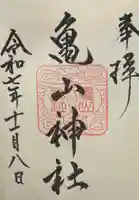 奉拝
亀山神社
令和七年十一月八日